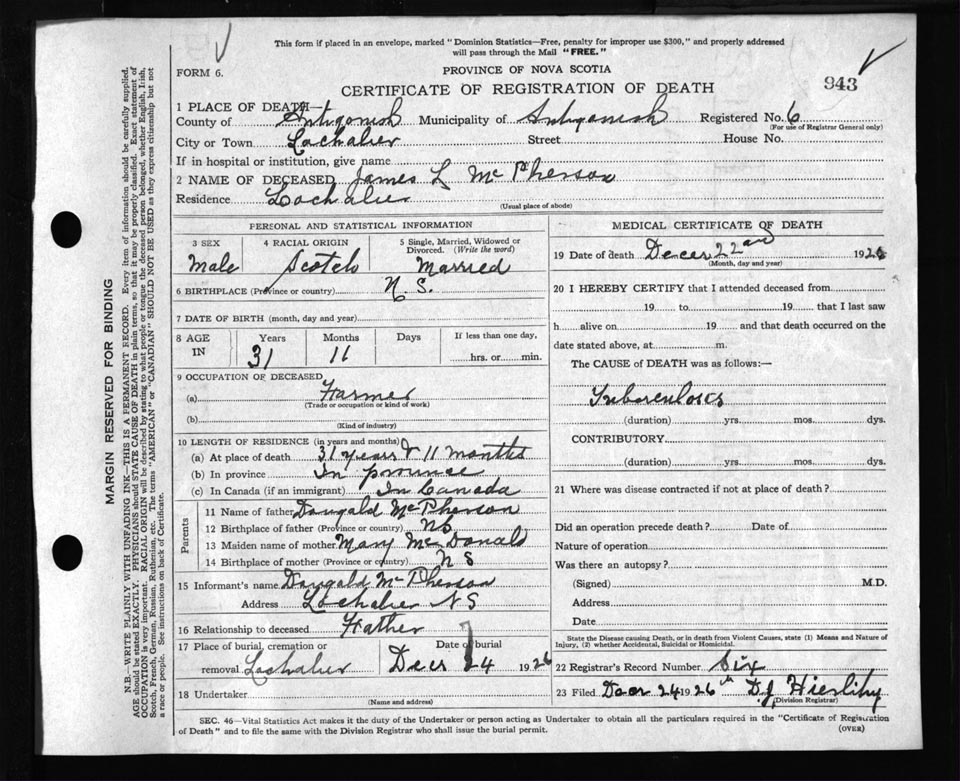 This form if placed in an envelope, marked "Dominion Statistics—Free, penalty for improper use $300," and properly addressed
will pass through the Mail "FREE."
FORM 6.
PROVINCE OF NOVA SCOTIA
CERTIFICATE OF REGISTRATION OF DEATH
943
1 PLACE OF DEATH—
County of Antigonish Municipality of Antigonish Registered No. 6
(For use of Registrar General only)
City or Town Lochaber Street House No.
If in hospital or institution, give name
2 NAME OF DECEASED James L McPherson
Residence Lochaber
(Usual place of abode)
PERSONAL AND STATISTICAL INFORMATION
3 SEX 4 RACIAL ORIGIN 5 Single, Married, Widowed or
Divorced. (Write the word)
Male Scotch Married
6 BIRTHPLACE (Province or country) N. S.
7 DATE OF BIRTH (month, day and year)
8 AGE IN Years Months Days If less than one day,
31 11 hrs. or min.
9 OCCUPATION OF DECEASED
(a) Farmer
(Trade or occupation or kind of work)
(b)
(Kind of industry)
10 LENGTH OF RESIDENCE (in years and months)
(a) At place of death 31 years & 11 months
(b) In province In province
(c) In Canada (if an immigrant) In Canada
Parents
11 Name of father Dougald McPherson
12 Birthplace of father (Province or country) NS
13 Maiden name of mother Mary McDonald
14 Birthplace of mother (Province or country) N S
15 Informant's name Dougald McPherson
Address Lochaber N S
16 Relationship to deceased Father
17 Place of burial, cremation or Date of burial
removal Lochaber Decr 24 1926
18 Undertaker
(Name and address)
MEDICAL CERTIFICATE OF DEATH
19 Date of death Decer 22nd 1926
(Month, day and year)
20 I HEREBY CERTIFY that I attended deceased from
19 to 19 that I last saw
h alive on 19 and that death occurred on the
date stated above, at m.
The CAUSE of DEATH was as follows:—
Tuberculosis
(duration) yrs. mos. dys.
CONTRIBUTORY
(duration) yrs. mos. dys.
21 Where was disease contracted if not at place of death?
Did an operation precede death? Date of
Nature of operation
Was there an autopsy?
(Signed) M.D.
Address
Date
State the Disease causing Death, or in death from Violent Causes, state (1) Means and Nature of
Injury, (2) whether Accidental, Suicidal or Homicidal.
22 Registrar's Record Number Six
23 Filed Decr 24th 1926 D. J. Hierlihy
(Division Registrar)
SEC. 46—Vital Statistics Act makes it the duty of the Undertaker or person acting as Undertaker to obtain all the particulars required in the "Certificate of Registration
of Death" and to file the same with the Division Registrar who shall issue the burial permit.
(OVER)
MARGIN RESERVED FOR BINDING
N.B.—WRITE PLAINLY WITH UNFADING INK—THIS IS A PERMANENT RECORD. Every item of information should be carefully supplied.
AGE should be stated EXACTLY. PHYSICIANS should STATE CAUSE OF DEATH in plain terms, so that it may be properly classified. Exact statement of
OCCUPATION is very important. RACIAL ORIGIN will be described by stating to what people or tongue the deceased person belonged, whether English, Irish,
Scotch, French, German, Russian, Ruthenian, etc. The terms "AMERICAN" or "CANADIAN" SHOULD NOT BE USED as they express citizenship but not
a race or people. See instructions on back of Certificate.